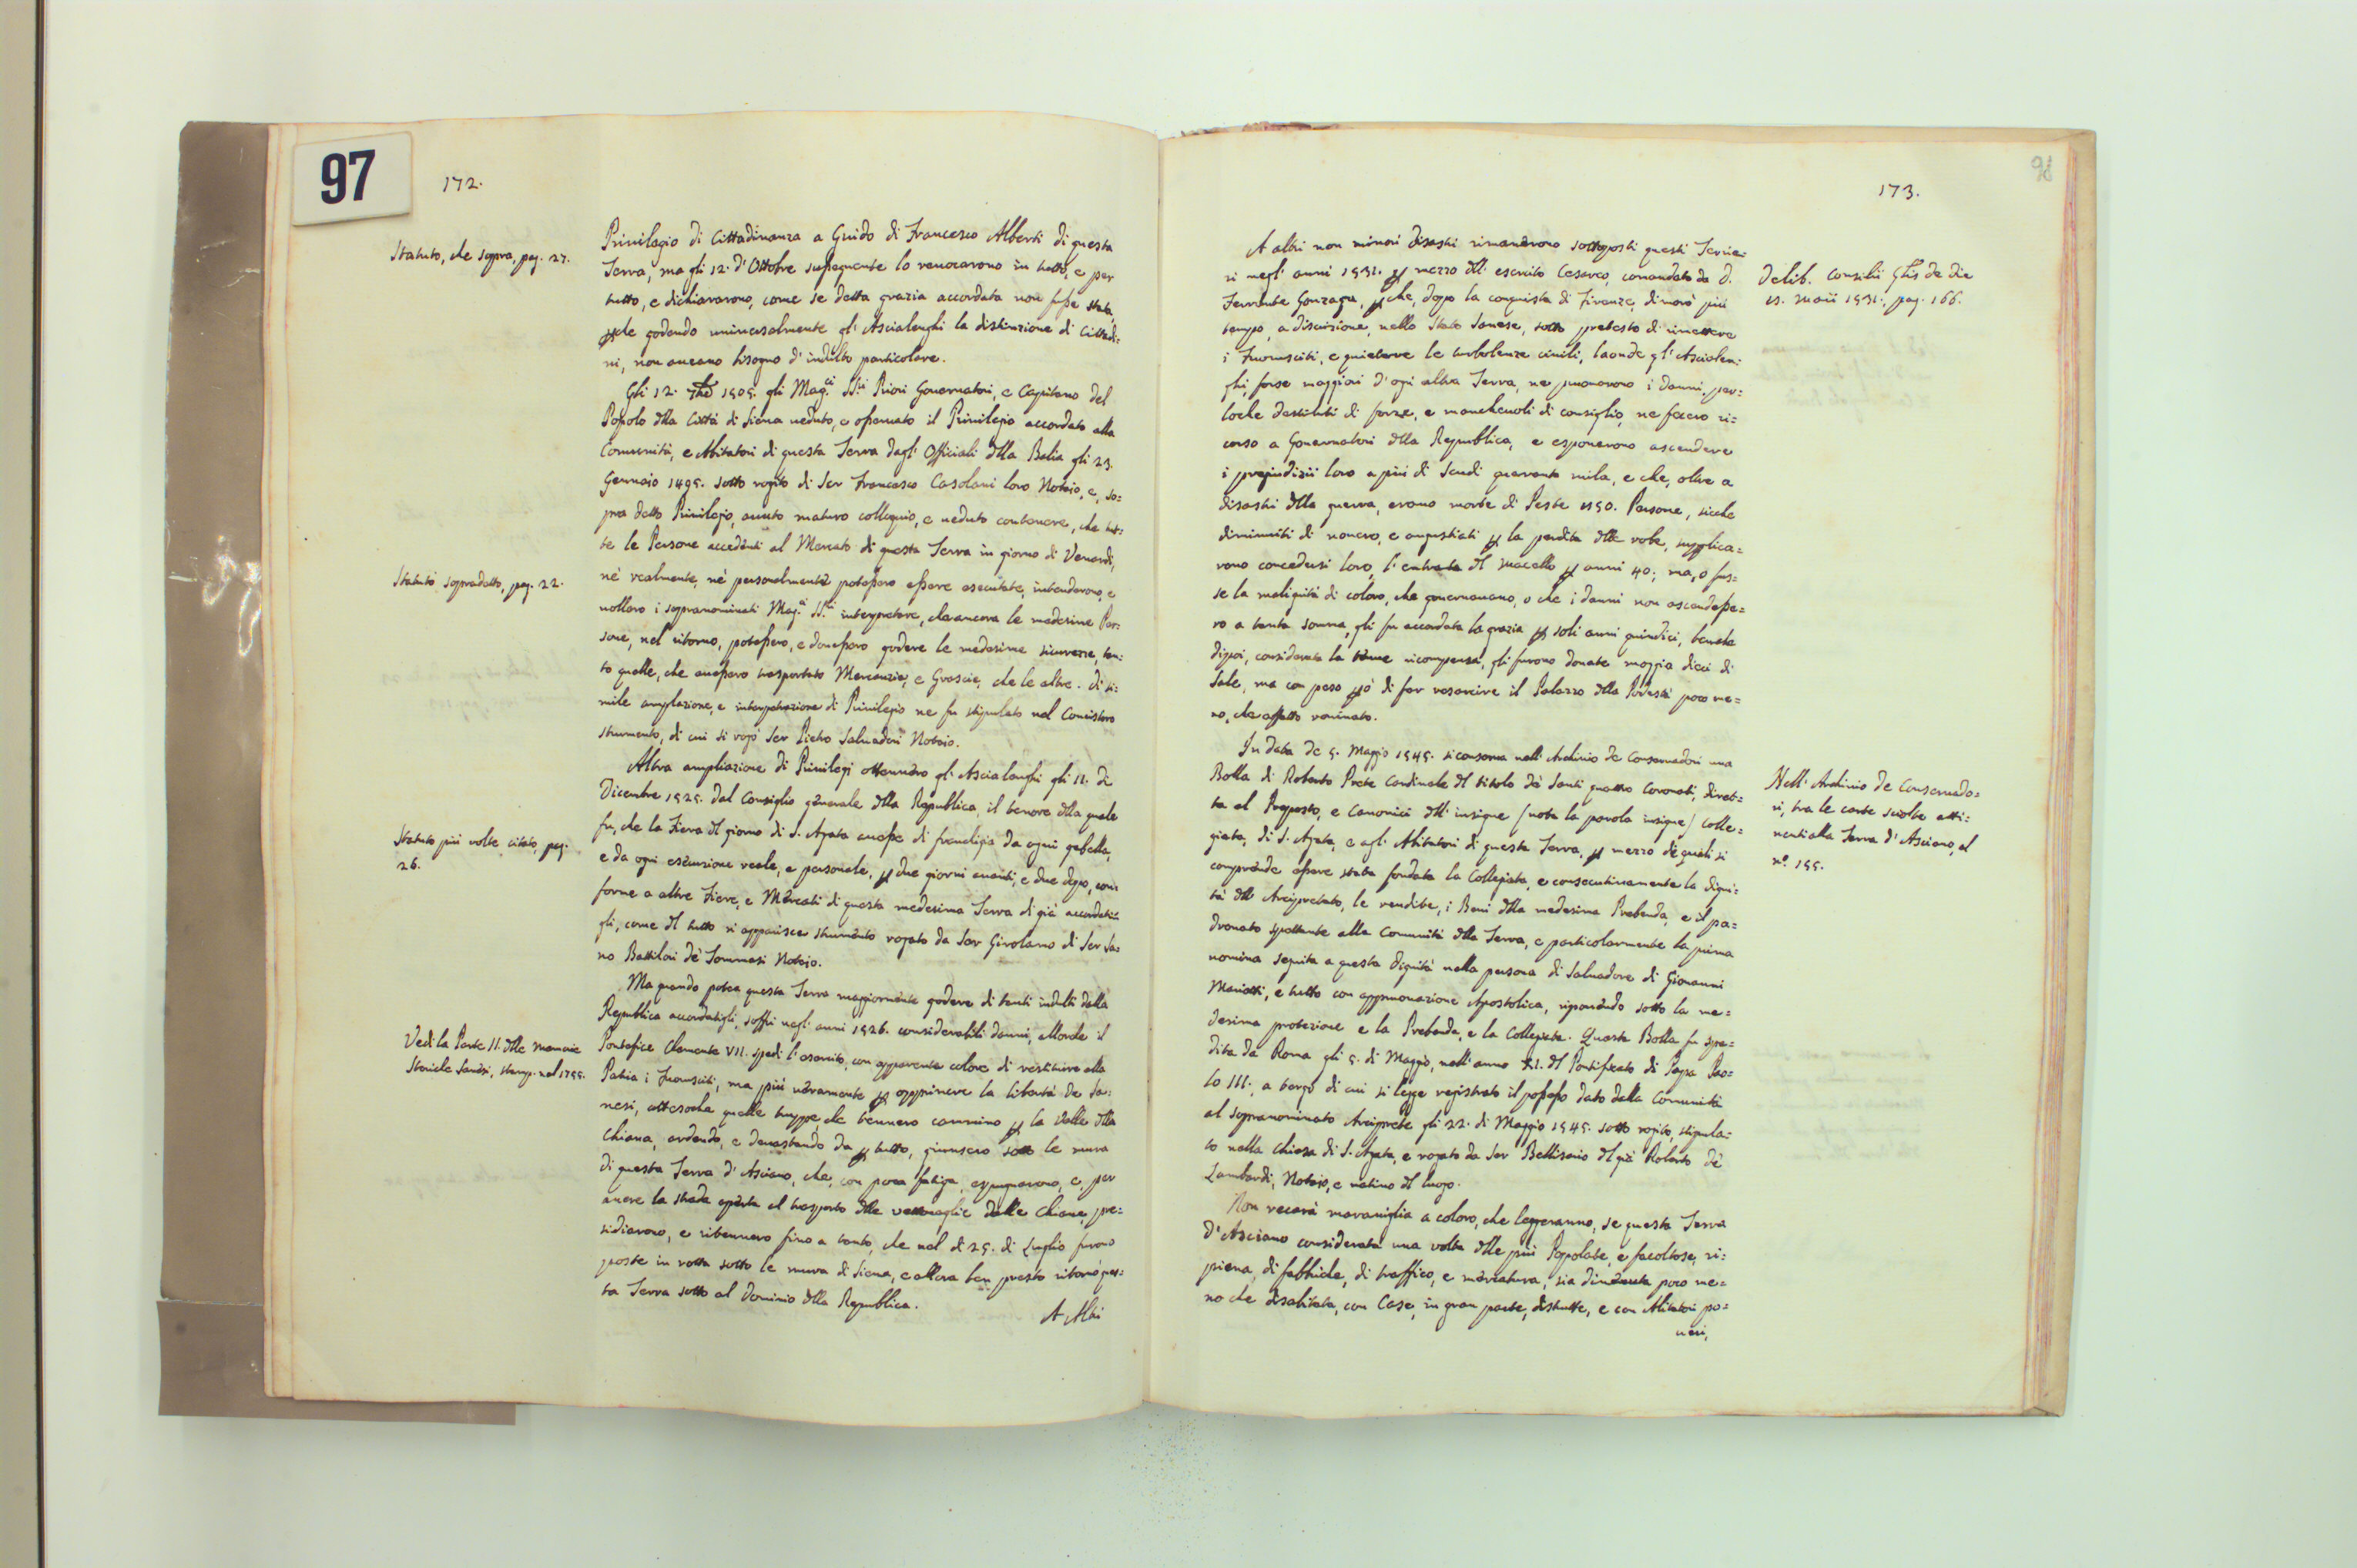 97
172.
Statuto, che sopra, pag. 27.
Privilegio di Cittadinanza a Guido di Francesco Alberti di questa
Terra, ma gli 12. d'Ottobre susseguente lo revocarono in tutto, e per
tutto, e dichiararono, come se detta grazia accordata non fosse stata,
pche godendo universalmente gl'Ascialenghi la distinzione di Cittadi=
ni, non aveano bisogno d'indulto particolare.
Gli 12. 7bre 1505. gli Mag.ci SS.ri Priori Governatori, e Capitano del
Popolo dlla Città di Siena veduto, e osservato il Privilegio accordato alla
Comunità, e Abitatori di questa Terra dagl'Officiali dlla Balia gli 23.
Gennaio 1495. sotto rogito di Ser Francesco Casolani loro Notaio, e, so=
pra detto Privilegio, avuto maturo colloquio, e veduto contenere, che tut=
te le Persone accedenti al Mercato di questa Terra in giorno di Venerdì,
Statuto sopradetto, pag. 22.
nè realmente, nè personalmente potessero essere esecutate, intenderono, e
vollero i sopranominati Mag.ci SS.ri interpretare, che ancora le medesime Per=
sone, nel ritorno, potessero, e dovessero godere le medesime sicurezze, tan=
to quelle, che avessero trasportato Mercanzie, e Grascie, che le altre. Di si=
mile ampliazione, e interpetrazione di Privilegio ne fu stipulato nel Concistoro
strumento, di cui si rogò Ser Pietro Salvadori Notaio.
Altra ampliazione di Privilegi ottennero gl'Ascialenghi gli 11. di
Dicembre 1525. dal Consiglio generale dlla Republica, il tenore dlla quale
Statuto più volte citato, pag.
26.
fu, che la Fiera dl giorno di S. Agata avesse di franchigia da ogni gabella,
e da ogni esecuzione reale, e personale, p due giorni avanti, e due dopo, con=
forme a altre Fiere, e Mercati di questa medesima Terra di già accordati=
gli, come dl tutto ri apparisce strumento rogato da Ser Girolamo di Ser Sa=
no Battilori de' Tommasi Notaio.
Ma quando potea questa Terra maggiormente godere di tanti indulti dalla
Republica accordatigli, soffrì negl'anni 1526. considerabili danni, allorche il
Vedi la Parte II. dlle memorie
Storiche Sanesi, stamp. nel 1755.
Pontefice Clemente VII. spedì l'esercito, con apparente colore di restituire alla
Patria i Fuorusciti, ma più veramente p opprimere la libertà de Sa=
nesi, attesoche quelle truppe, che tennero cammino p la Valle dlla
Chiana, ardendo, e devastando da p tutto, giunsero sotto le mura
di questa Terra d'Asciano, che, con poca fatiga, espugnarono, e, per
avere la strada aperta al trasporto dlle vettovaglie dalle Chiane, pre=
sidiarono, e ritennero fino a tanto, che nel dì 25. di Luglio furono
poste in rotta sotto le mura di Siena, e allora ben presto ritornò ques=
ta Terra sotto al Dominio dlla Republica.
A Altri
173.
A altri non minori disastri rimanerono sottoposti questi Terrie=
ri negl'anni 1531. p mezzo dll'esercito Cesareo, comandato da D.
Ferrante Gonzaga, pche, dopo la conquista di Firenze, dimorò più
tempo, a discrizione, nello Stato Sanese, sotto pretesto di rimettere
i Fuorusciti, e quietare le turbolenze civili, laonde gl'Ascialen=
ghi, forse maggiori d'ogni altra Terra, ne provarono i danni, per=
loche destituti di forze, e manchevoli di consiglio, ne fecero ri=
corso a Governatori dlla Republica, e esponerono ascendere
i pregiudizii loro a più di Scudi quaranta mila, e che, oltre a
disastri dlla guerra, erano morte di Peste 1150. Persone, sicche
diminuiti di numero, e angustiati p la perdita dlle robe, supplica=
rono concedersi loro, l'entrata dl Macello p anni 40; ma, o fus=
se la malignità di coloro, che governavano, o che i danni non ascendesse=
ro a tanta somma, gli fu accordata la grazia p soli anni quindici, benche
dipoi, considerata la tenue ricompensa, gli furono donate moggia dieci di
Sale, ma con peso pò di far resarcire il Palazzo dlla Podestà poco me=
no, che affatto rovinato.
Delib. Consilii Glis de die
15. Maii 1531., pag. 166.
In data de 5. Maggio 1545. si conserva nell'Archivio de Conservadori una
Bolla di Roberto Prete Cardinale dl titolo de' Santi quattro Coronati, diret=
ta al Preposto, e Canonici dll'insigne (nota la parola insigne) Colle=
giata, di S. Agata, e agl'Abitatori di questa Terra, p mezzo de quali si
comprende essere stata fondata la Collegiata, e consecutivamente la digni=
tà dll'Arcipretato, le rendite, i Beni dlla medesima Prebenda, e il pa=
dronato spettante alla Comunità dlla Terra, e particolarmente la prima
nomina seguita a questa dignità nella persona di Salvadore di Giovanni
Mariotti, e tutto con approvazione Apostolica, riponendo sotto la me=
desima protezione e la Prebenda, e la Collegiata. Questa Bolla fu spe=
dita da Roma gli 5. di Maggio, nell'anno XI. dl Pontificato di Papa Pao=
lo III., a tergo di cui si legge registrato il possesso dato dalla Comunità
al sopranominato Arciprete gli 22. di Maggio 1545. sotto rogito, stipula=
to nella Chiesa di S. Agata, e rogato da Ser Bellisario dl già Roberto de'
Lombardi, Notaio, e nativo dl luogo.
Nell'Archivio de Conservado=
ri, tra le carte sciolte atti=
nenti alla Terra d'Asciano, al
n.o 155.
Non recarà maraviglia a coloro, che leggeranno, se questa Terra
d'Asciano considerata una volta dlle più Popolate, e facoltose, ri=
piena, di fabbriche, di traffico, e mercatura, sia divenuta poco me=
no che disabitata, con Case, in gran parte, distrutte, e con Abitatori po=
veri,